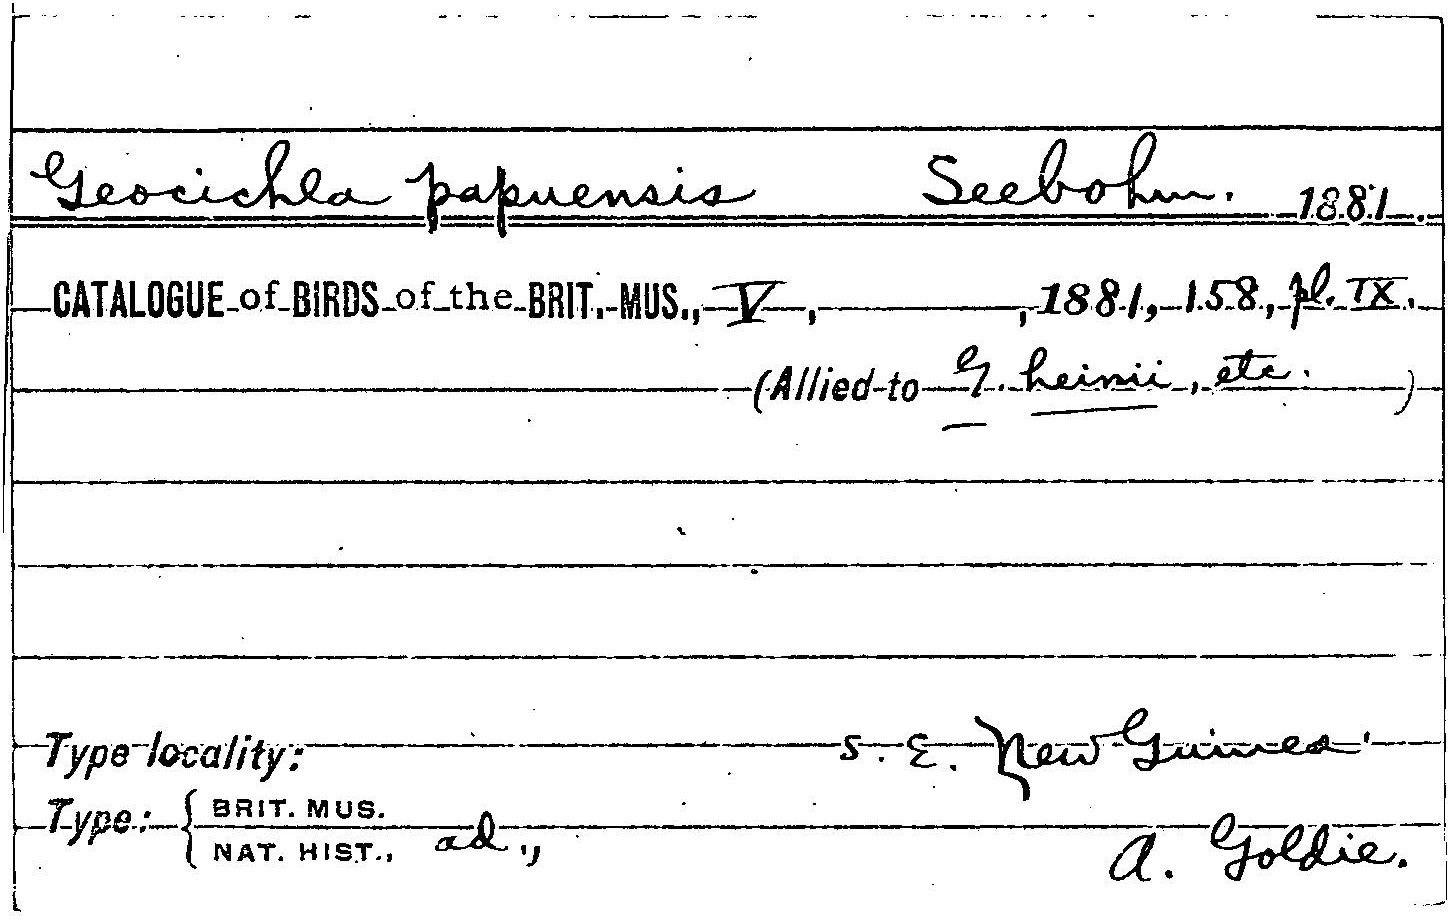 Geocichla papuensis Seebohm. 1881.
CATALOGUE of BIRDS of the BRIT. MUS., V, , 1881, 158, pl. IX.
(Allied to G. heinii, etc. )
Type locality: S. E. New Guinea
Type: { BRIT. MUS.
NAT. HIST., ad., A. Goldie.